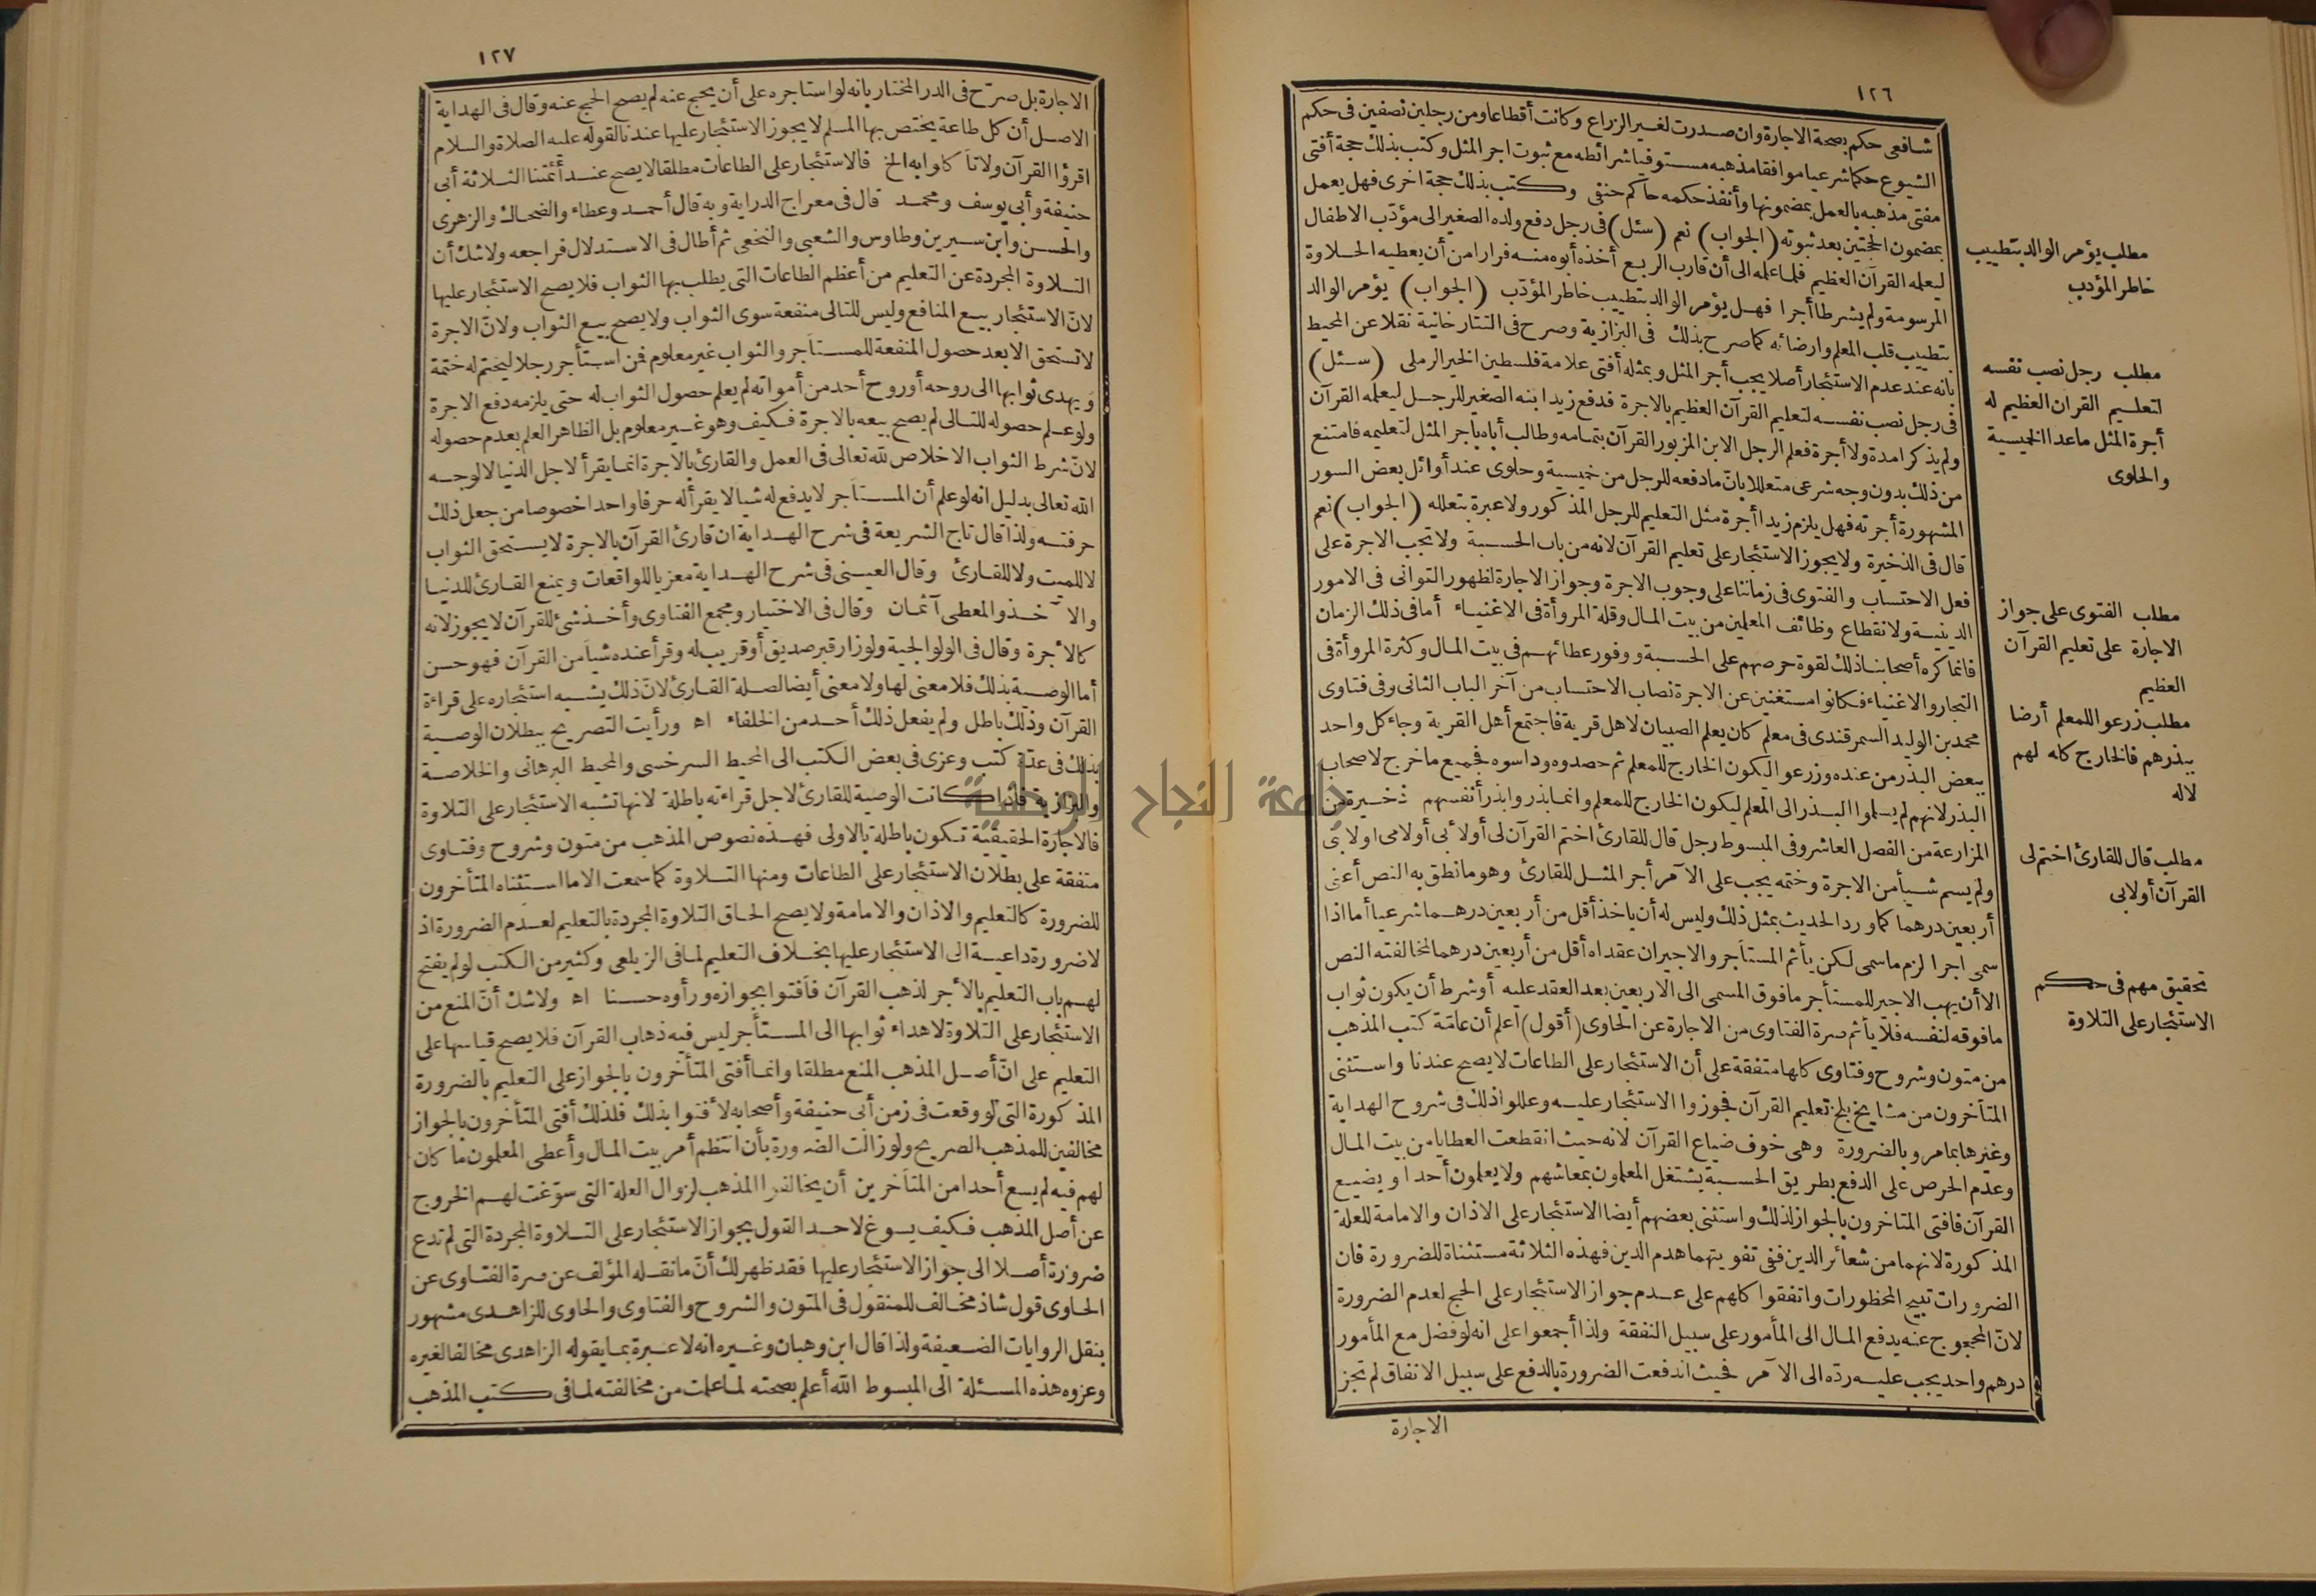 ١٢٦
شافعى حكم بصحة الاجارة وان صدرت لغير الزراع وكانت أقطاعا ومن رجلين نصفين فى حكم
الشيوع حكما شرعيا موافقا مذهبه مستوفيا شرائطه مع ثبوت اجر المثل وكتب بذلك حجة أفتى
مفتى مذهبه بالعمل بمضمونها وأنفذ حكمه حاكم حنفى وكتب بذلك حجة اخرى فهل يعمل
بمضمون الحجتين بعد ثبوته (الجواب) نعم (سئل) فى رجل دفع ولده الصغير الى مؤدّب الاطفال
ليعلمه القرآن العظيم فلما علمه الى أن قارب الربع أخذه أبوه منه فرارا من أن يعطيه الحلاوة
المرسومة ولم يشرطا أجرا فهل يؤمر الوالد بتطييب خاطر المؤدّب (الجواب) يؤمر الوالد
بتطييب قلب المعلم وارضائه كما صرح بذلك فى البزازية وصرح فى التتارخانية نقلا عن المحيط
بانه عند عدم الاستئجار أصلا يجب أجر المثل وبمثله أفتى علامة فلسطين الخير الرملى (سئل)
فى رجل نصب نفسه لتعليم القرآن العظيم بالاجرة فدفع زيد ابنه الصغير للرجل ليعلمه القرآن
ولم يذكرا مدة ولا أجرة فعلم الرجل الابن المزبور القرآن بتمامه وطالب أباه باجر المثل لتعليمه فامتنع
من ذلك بدون وجه شرعى متعللا بانّ مادفعه للرجل من خميسية وحلوى عند أوائل بعض السور
المشهورة أجرته فهل يلزم زيدا أجرة مثل التعليم للرجل المذكور ولا عبرة بتعلله (الجواب) نعم
قال فى الذخيرة ولا يجوز الاستئجار على تعليم القرآن لانه من باب الحسبة ولا تجب الاجرة على
فعل الاحتساب والفتوى فى زماننا على وجوب الاجرة وجواز الاجارة لظهور التوانى فى الامور
الدينية ولانقطاع وظائف المعلمين من بيت المال وقلة المروأة فى الاغنياء أما فى ذلك الزمان
فانما كره أصحابنا ذلك لقوة حرصهم على الحسبة ووفور عطائهم فى بيت المال وكثرة المروأة فى
التجار والاغنياء فكانوا مستغنين عن الاجرة نصاب الاحتساب من آخر الباب الثانى وفى فتاوى
محمد بن الوليد السمرقندى فى معلم كان يعلم الصبيان لاهل قرية فاجتمع أهل القرية وجاء كل واحد
ببعض البذر من عنده وزرعو اليكون الخارج للمعلم ثم حصدوه وداسوه فجميع ماخرج لاصحاب
البذر لانهم لم يسلموا البذر الى المعلم ليكون الخارج للمعلم وانما بذروا بذر أنفسهم ذخيرة من
المزارعة من الفصل العاشر وفى المبسوط رجل قال للقارئ اختم القرآن لى أو لأبى أو لامى او لابنى
ولم يسم شيأ من الاجرة وختمه يجب على الآمر أجر المثل للقارئ وهو مانطق به النص أعنى
أربعين درهما كما ورد الحديث بمثل ذلك وليس له أن ياخذ أقل من أربعين درهما شرعيا أما اذا
سمى اجرا لزم ماسمى لكن يأثم المستاجر والاجير ان عقداه أقل من أربعين درهما لمخالفته النص
الا أن يهب الاجير للمستأجر مافوق المسمى الى الاربعين بعد العقد عليه أو شرط أن يكون ثواب
مافوقه لنفسه فلا يأثم صرة الفتاوى من الاجارة عن الحاوى (أقول) اعلم أن عامّة كتب المذهب
من متون وشروح وفتاوى كلها متفقة على أن الاستئجار على الطاعات لا يصح عندنا واستثنى
المتأخرون من مشايخ بلخ تعليم القرآن فجوزوا الاستئجار عليه وعللوا ذلك فى شروح الهداية
وغيرها بما مر وبالضرورة وهى خوف ضياع القرآن لانه حيث انقطعت العطايا من بيت المال
وعدم الحرص على الدفع بطريق الحسبة يشتغل المعلمون بمعاشهم ولا يعلمون أحدا ويضيع
القرآن فافتى المتاخرون بالجواز لذلك واستثنى بعضهم أيضا الاستئجار على الاذان والامامة للعلة
المذكورة لانهما من شعائر الدين ففى تفويتهما هدم الدين فهذه الثلاثة مستثناة للضرورة فان
الضرورات تبيح المحظورات واتفقوا كلهم على عدم جواز الاستئجار على الحج لعدم الضرورة
لانّ المحجوج عنه يدفع المال الى المأمور على سبيل النفقة ولذا أجمعوا على انه لو فضل مع المأمور
درهم واحد يجب عليه ردّه الى الآمر فحيث اندفعت الضرورة بالدفع على سبيل الانفاق لم تجز
الاجارة
مطلب يؤمر الوالد بتطييب
خاطر المؤدب
مطلب رجل نصب نفسه
لتعليم القران العظيم له
أجرة المثل ماعدا الخميسية
والحلوى
مطلب الفتوى على جواز
الاجارة على تعليم القرآن
العظيم
مطلب زرعوا للمعلم أرضا
ببذرهم فالخارج كله لهم
لا له
مطلب قال للقارئ اختم لى
القرآن أو لابى
تحقيق مهم فى حكم
الاستئجار على التلاوة
١٢٧
الاجارة بل صرّح فى الدر المختار بانه لو استاجره على أن يحج عنه لم يصح الحج عنه وقال فى الهداية
الاصل أن كل طاعة يختص بها المسلم لا يجوز الاستئجار عليها عندنا لقوله عليه الصلاة والسلام
اقرؤا القرآن ولا تأكلوا به الخ فالاستئجار على الطاعات مطلقا لا يصح عند أئمتنا الثلاثة أبى
حنيفة وأبى يوسف ومحمد قال فى معراج الدراية وبه قال أحمد وعطاء والضحاك والزهرى
والحسن وابن سيرين وطاوس والشعبى والنخعى ثم أطال فى الاستدلال فراجعه ولا شك أن
التلاوة المجردة عن التعليم من أعظم الطاعات التى يطلب بها الثواب فلا يصح الاستئجار عليها
لانّ الاستئجار بيع المنافع وليس للتالى منفعة سوى الثواب ولا يصح بيع الثواب ولانّ الاجرة
لا تستحق الا بعد حصول المنفعة للمستأجر والثواب غير معلوم فمن استأجر رجلا ليختم له ختمة
ويهدى ثوابها الى روحه أو روح أحد من أمواته لم يعلم حصول الثواب له حتى يلزمه دفع الاجرة
ولو علم حصوله للتالى لم يصح بيعه بالاجرة فكيف وهو غير معلوم بل الظاهر العلم بعدم حصوله
لانّ شرط الثواب الاخلاص لله تعالى فى العمل والقارئ بالاجرة انما يقرأ لاجل الدنيا لا لوجه
الله تعالى بدليل انه لو علم أن المستأجر لا يدفع له شيأ لا يقرأ له حرفا واحدا خصوصا من جعل ذلك
حرفته ولذا قال تاج الشريعة فى شرح الهداية ان قارئ القرآن بالاجرة لا يستحق الثواب
لا للميت ولا للقارئ وقال العينى فى شرح الهداية معزيا للواقعات ويمنع القارئ للدنيا
والآخذ والمعطى آثمان وقال فى الاختيار ومجمع الفتاوى وأخذ شئ للقرآن لا يجوز لانه
كالأجرة وقال فى الولوالجية ولو زار قبر صديق أو قريب له وقرأ عنده شيأ من القرآن فهو حسن
أما الوصية بذلك فلا معنى لها ولا معنى أيضا لصلة القارئ لانّ ذلك يشبه استئجاره على قراءة
القرآن وذلك باطل ولم يفعل ذلك أحد من الخلفاء اه ورأيت التصريح ببطلان الوصية
بذلك فى عدّة كتب وعزى فى بعض الكتب الى المحيط السرخسى والمحيط البرهانى والخلاصة
والبزازية فاذا كانت الوصية للقارئ لاجل قراءته باطلة لانها تشبه الاستئجار على التلاوة
فالاجارة الحقيقية تكون باطلة بالاولى فهذه نصوص المذهب من متون وشروح وفتاوى
متفقة على بطلان الاستئجار على الطاعات ومنها التلاوة كما سمعت الا ما استثناه المتأخرون
للضرورة كالتعليم والاذان والامامة ولا يصح الحاق التلاوة المجردة بالتعليم لعدم الضرورة اذ
لا ضرورة داعية الى الاستئجار عليها بخلاف التعليم لما فى الزيلعى وكثير من الكتب لو لم يفتح
لهم باب التعليم بالأجر لذهب القرآن فأفتوا بجوازه ورأوه حسنا اه ولا شك أنّ المنع من
الاستئجار على التلاوة لاهداء ثوابها الى المستأجر ليس فيه ذهاب القرآن فلا يصح قياسها على
التعليم على انّ أصل المذهب المنع مطلقا وانما أفتى المتأخرون بالجواز على التعليم بالضرورة
المذكورة التى لو وقعت فى زمن أبى حنيفة وأصحابه لأفتوا بذلك فلذلك أفتى المتأخرون بالجواز
مخالفين للمذهب الصريح ولو زالت الضرورة بأن انتظم أمر بيت المال وأعطى المعلمون ما كان
لهم فيه لم يسع أحدا من المتأخرين أن يخالفوا المذهب لزوال العلة التى سوّغت لهم الخروج
عن أصل المذهب فكيف يسوغ لاحد القول بجواز الاستئجار على التلاوة المجردة التى لم تدع
ضرورة أصلا الى جواز الاستئجار عليها فقد ظهر لك أنّ مانقله المؤلف عن صرة الفتاوى عن
الحاوى قول شاذ مخالف للمنقول فى المتون والشروح والفتاوى والحاوى للزاهدى مشهور
بنقل الروايات الضعيفة ولذا قال ابن وهبان وغيره انه لا عبرة بما يقوله الزاهدى مخالفا لغيره
وعزوه هذه المسئلة الى المبسوط الله أعلم بصحته لما علمت من مخالفته لما فى كتب المذهب
جامعة النجاح الوطنية